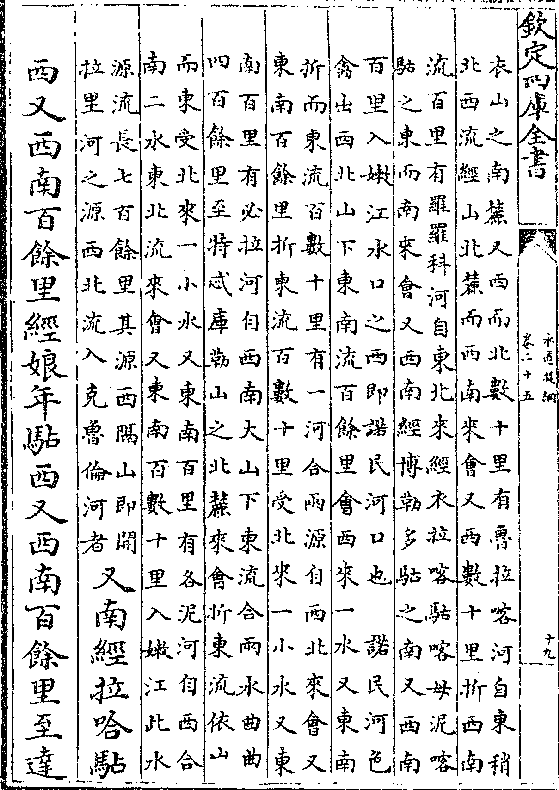 欽定四庫全書
水道提綱
卷二十五
十九
衣山之南麓又西而北數十里有魯拉喀河自東稍
北西流經山北麓而西南來會又西數十里折西南
流百里有羅羅科河自東北來經衣拉喀站喀毋泥喀
站之東而南來會又西南經博勒多站之南又西南
百里入嫩江水口之西即諾民河口也 諾民河色
禽出西北山下東南流百餘里會西來一水又東南
折而東流百數十里有一河合兩源自西北來會又
東南百餘里折東流百數十里受北來一小水又東
南百里有必拉河自西南大山下東流合兩水曲曲
四百餘里至特忒庫勒山之北麓來會折東流依山
而東受北來一小水又東南百里有各泥河自西合
南二水東北流來會又東南百數十里入嫩江此水
源流長七百餘里其源西隅山即開
拉里河之源西北流入克魯倫河者
又南經拉哈站
西又西南百餘里經娘年站西又西南百餘里至達